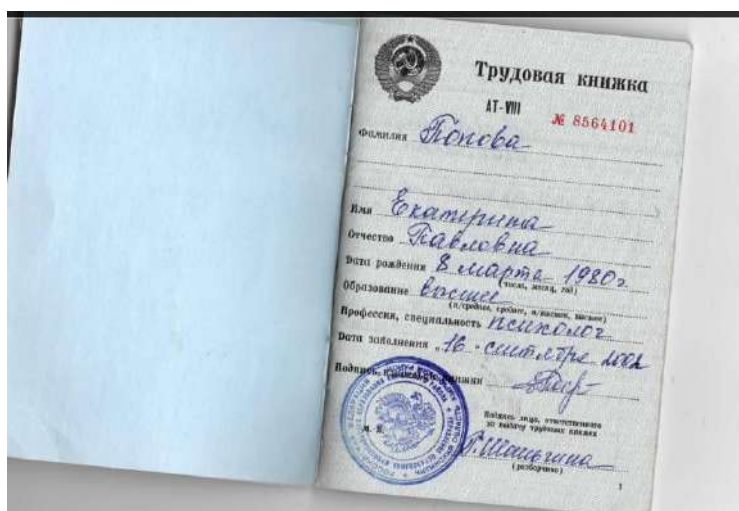 Трудовая книжка
АТ-VIII № 8564101
Фамилия Попова
Имя Екатерина
Отчество Павловна
Дата рождения 8 марта 1980г
(число, месяц, год)
Образование высшее
Профессия, специальность психолог
Дата заполнения „16 сентября 2002
Подпись книжки
Подпись лица, ответственного
за выдачу трудовых книжек
М. П.
(разборчиво)
1